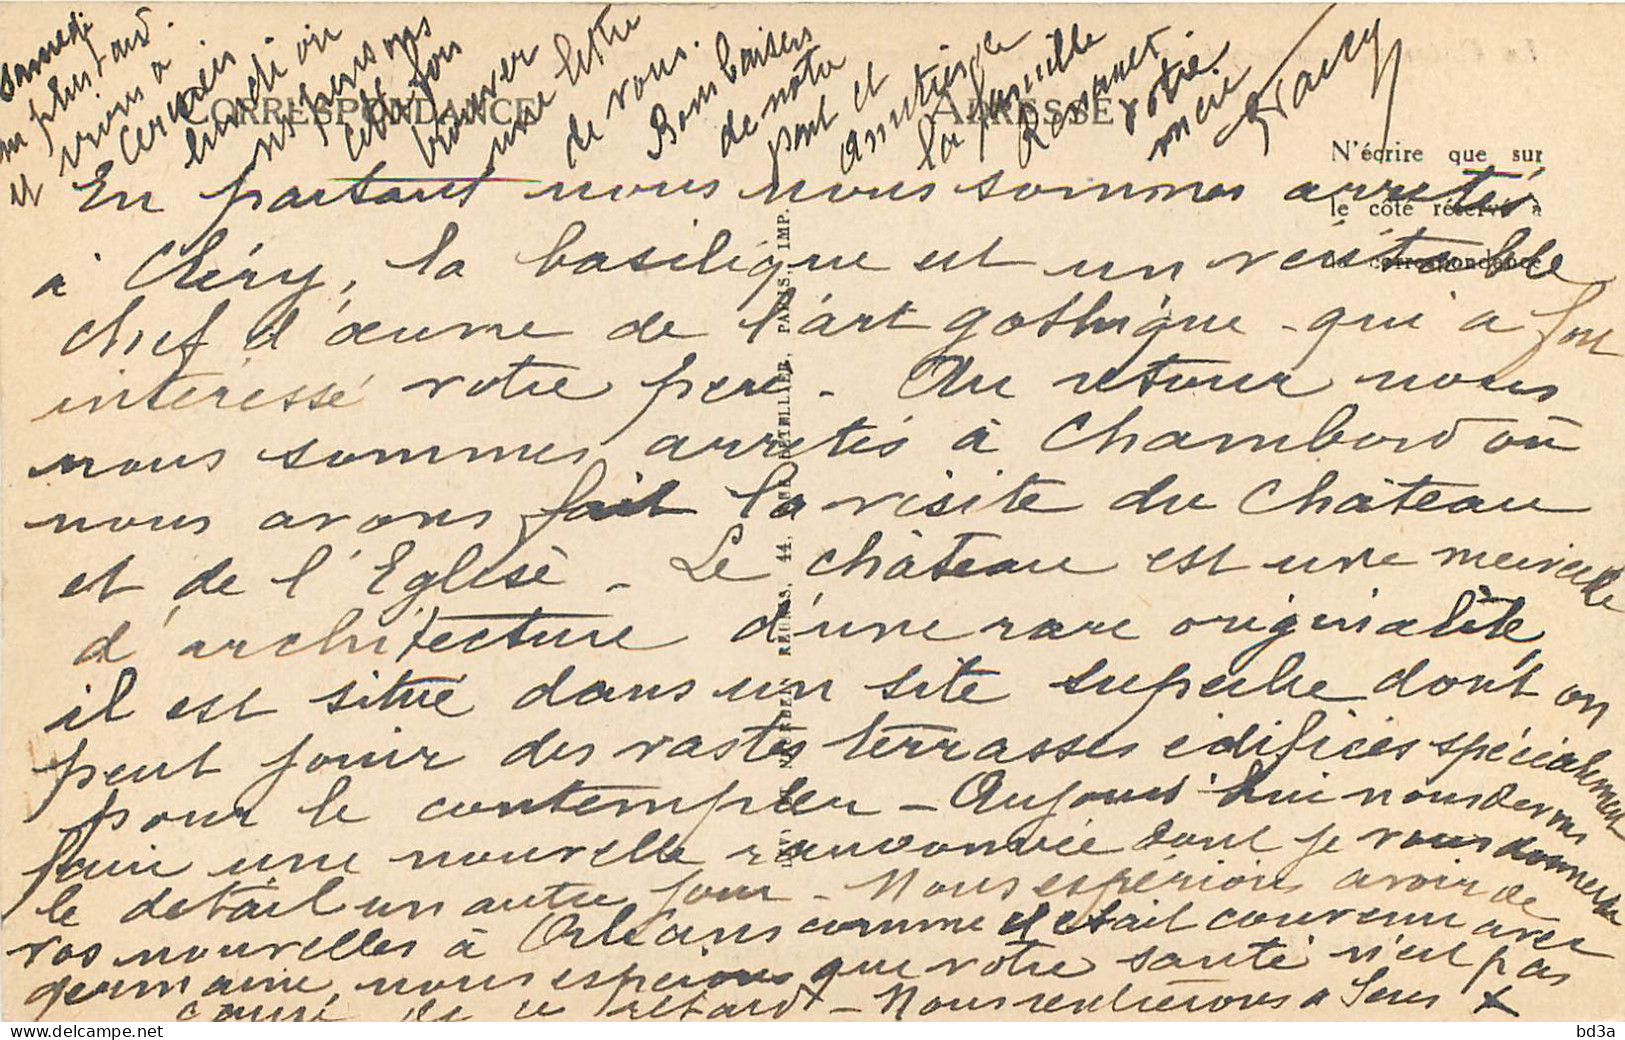 CORRESPONDANCE
ADRESSE
N'écrire que sur
le côté réservé à
la correspondance
En partant nous nous sommes arretés
à Cléry, la basilique est un véritable
chef d'œuvre de l'art gothique - qui a fort
intéressé votre père - Au retour nous
nous sommes arretés à Chambord où
nous avons fait la visite du Château
et de l'Eglise - Le château est une merveille
d'architecture d'une rare originalité,
il est situé dans un site superbe dont on
peut jouir des vastes terrasses édifiées spécialement
pour le contempler - Aujourd'hui nous devons
faire une nouvelle randonnée dont je vous donnerai
le détail un autre jour - Nous espérions avoir de
vos nouvelles à Orléans comme il était convenu avec
germaine, nous espérons que votre santé n'est pas
cause de ce retard - Nous rentrerons à Sens
samedi
au plus tard.
et irons à
Cerisiers
lundi où
ns pensons
cette fois
trouver
une lettre
de vous.
Bons baisers
de notre
part et
amitiés de
la famille
votre
amie
IMP.
PARIS
44, RUE LETELLIER,